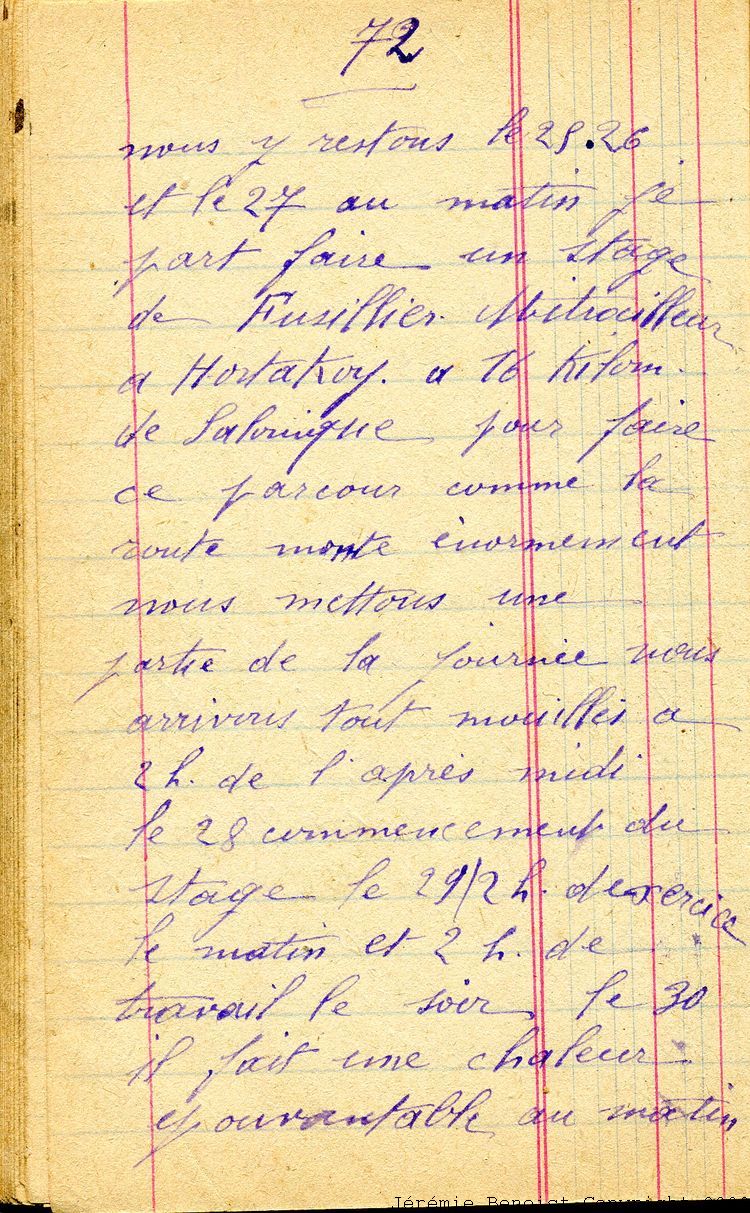 72
nous y restons le 25.26
et le 27 au matin je
part faire un stage
de Fusillier Mitrailleur
a Hortakoy. a 16 Kilom.
de Salonique pour faire
ce parcour comme la
route monte ènormement
nous mettons une
partie de la journée nous
arrivons tout mouillés a
2 h. de l'après midi
le 28 commencement du
stage le 29/2 h. dexercice
le matin et 2 h. de
travail le soir le 30
il fait une chaleur
epouvantable au matin
Jérémie Benoist Copyright